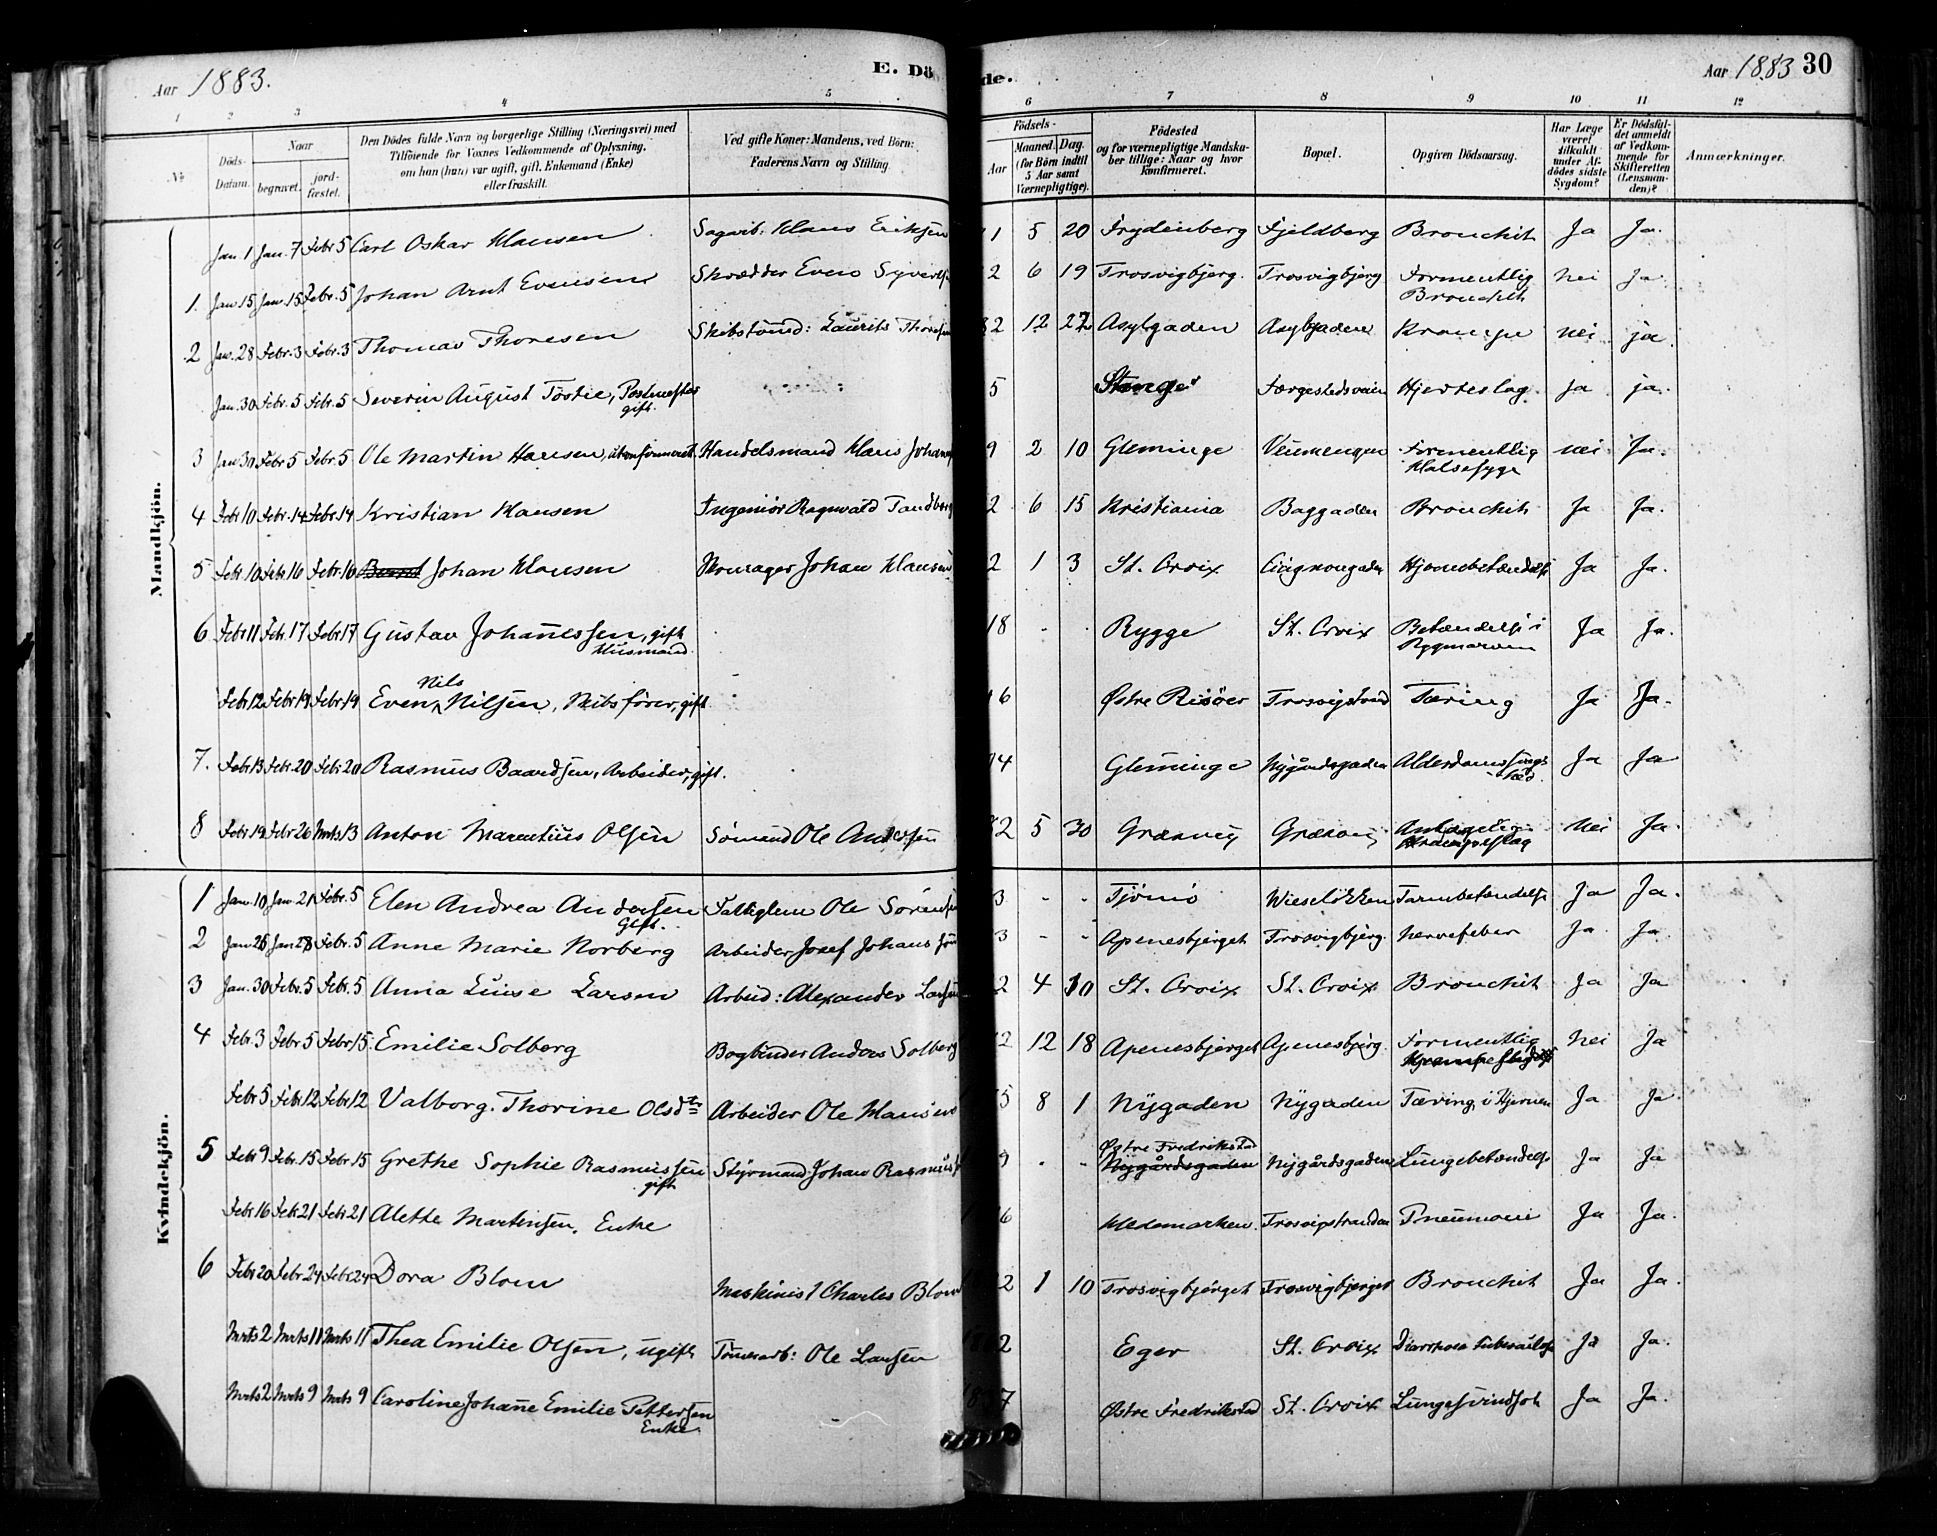 Aar 1883. E. Dö
de. Aar 1883 30
1 2 3 4 5
6 7 8 9 10 11 12
No Döds-Datum. Naar begravet. jord-fæstet. Den Dödes fulde Navn og borgerlige Stilling (Næringsvei) med Tilföiende for Voxnes Vedkommende af Oplysning, om han (hun) var ugift, gift, Enkemand (Enke) eller fraskilt. Ved gifte Koner: Mandens, ved Börn: Faderens Navn og Stilling.
Födsels- Aar Maaned. Dag. (for Börn indtil 5 Aar samt Værnepligtige). Födested og for værnepligtige Mandskaber tillige: Naar og hvor konfirmeret. Bopæl. Opgiven Dödsaarsag. Har Læge været tilkaldt under Afdödes sidste Sygdom? Er Dödsfaldet anmeldt af Vedkommende for Skifteretten (Lensmanden)? Anmærkninger.
Mandkjön.
Jan. 1 Jan. 7 Febr. 5 Carl Oskar Hansen Sagarb. Hans Eriksen 1 5 20 Frydenberg Fjeldberg Bronchit Ja Ja.
1. Jan. 15 Jan. 15 Febr. 5 Johan Arnt Evensen Skrædder Even Syverts 2 6 19 Trosvigbjerg. Trosvigbjerg Formentlig Bronchit Nei Ja.
2 Jan. 28 Febr. 3 Febr. 3 Thomas Thoresen Skibstömd: Laurits Thoresen 82 12 27 Asylgaden Asylgaden Krampe Nei ja.
Jan. 30 Febr. 5 Febr. 5 Severin August Tostie, Postmester gift. 5 Stange Færgestedsveien Hjerteslag. Ja ja.
3 Jan. 30 Febr. 5 Febr. 5 Ole Martin Hansen, ukonfirmeret. Handelsmand Hans Johans 9 2 10 Gleminge Veumengen Formentlig Halsesyge Nei Ja.
4 Febr. 10 Febr. 14 Febr. 14 Kristian Hansen Ingeniör Ragnvald Tandberg 2 6 15 Kristiania Baggaden Bronchit Ja Ja.
5 Febr. 10 Febr. 16 Febr. 16 Johan Hansen Skomager Johan Hansen 2 1 3 St. Croix Hjernebetændelse Ja Ja.
6 Febr. 11 Febr. 17 Febr. 17 Gustav Johannessen, gift Husmand. 18 - - Rygge St. Croix Betændelse i Rygmarven Ja Ja.
Febr. 12 Febr. 19 Febr. 19 Even Nils Nilsen, Skibsförer, gift. 6 Østre Risöer Trosvigstrand Tæring Ja Ja.
7. Febr. 13 Febr. 20 Febr. 20 Rasmus Baardsen, Arbeider, gift. 4 Gleminge Nygårdsgaden Ja Ja
8 Febr. 19 Febr. 26 Mrts 13 Anton Marentius Olsen Sömand Ole Andersen 82 5 30 Græsvig Græsvig Nei Ja.
Kvindekjön.
1 Jan. 10 Jan. 21 Febr. 5 Elen Andrea Andersen Gift. Fattiglem Ole Sörensen 3 - - Tjömö Wieselökken Tarmbetændelse Ja Ja.
2 Jan. 25 Jan. 28 Febr. 5 Anne Marie Norberg Arbeider Josef Johans 3 - - Apenesbjerget Trosvigbjerg. Nervefeber Ja Ja.
3 Jan. 30 Febr. 5 Febr. 5 Anna Luise Larsen Arbeid: Alexander Larsen 2 4 10 St. Croix St. Croix Bronchit Ja Ja
4 Febr. 3 Febr. 5 Febr. 15 Emilie Solberg Bogbinder Anders Solberg 2 12 18 Apenesbjerget Apenesbjerg. Formentlig Nei Ja
Febr. 5 Febr. 12 Febr. 12 Valborg Thorine Olsdtr Arbeider Ole Hansen 5 8 1 Nygaden Nygaden Tæring i Hjernen Ja Ja.
5 Febr. 9 Febr. 15 Febr. 15 Grethe Sophie Rasmussen gift Styrmand Johan Rasmuss 9 - - Østre Fredrikstad Nygårdsgaden Nygårdsgaden Lungebetændelse Ja Ja
Febr. 16 Febr. 21 Febr. 21 Alette Martinsen, Enke 6 Hedemarken. Trosvigstranden Pneumoni Ja Ja.
6 Febr. 20 Febr. 24 Febr. 24 Dora Blom Maskinist Charles Blom 2 1 10 Trosvigbjerget Trosvigbjerget Bronchit Ja Ja.
Mrts 2 Mrts 11 Mrts 11 Thea Emilie Olsen, ugift Tömmerarb: Ole Larsen 2 Eger St. Croix Diarrhoea Tuberculosa Ja Ja.
Mrts 2 Mrts 9 Mrts 9 Caroline Johanne Emilie Pettersen Enke. 18 7 Østre Fredrikstad St. Croix Lungesvindsot Ja Ja.